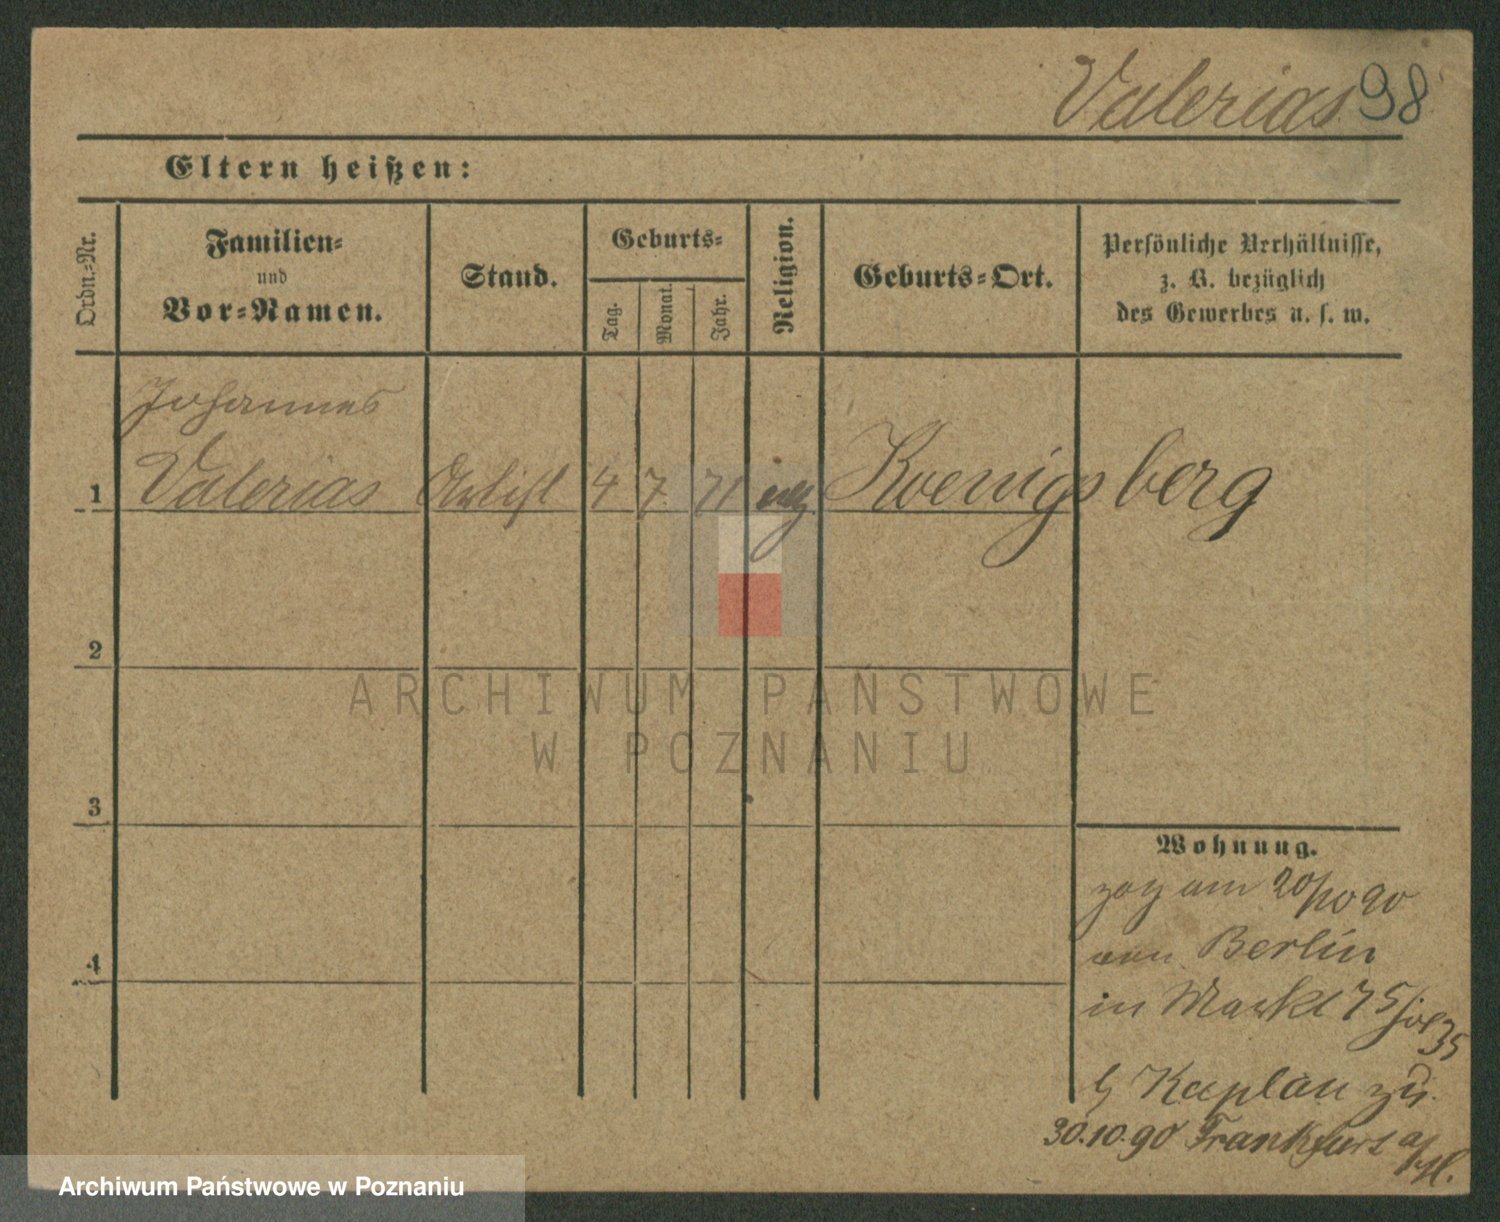 Valerias 98
Eltern heißen:
Ordn.=Nr.
Familien=
und
Vor=Namen.
Stand.
Geburts=
Tag.
Monat.
Jahr.
Religion.
Geburts=Ort.
Persönliche Verhältnisse,
z. B. bezüglich
des Gewerbes u. s. w.
Johannes
1 Valerias Artist 4 7 71 Koenigsberg
2
3
4
ARCHIWUM PAŃSTWOWE
W POZNANIU
Wohnung.
zog am 20/10 90
von Berlin
in Markt 75
b Kaplan zu.
30.10.90 Frankfurt a/M.
Archiwum Państwowe w Poznaniu